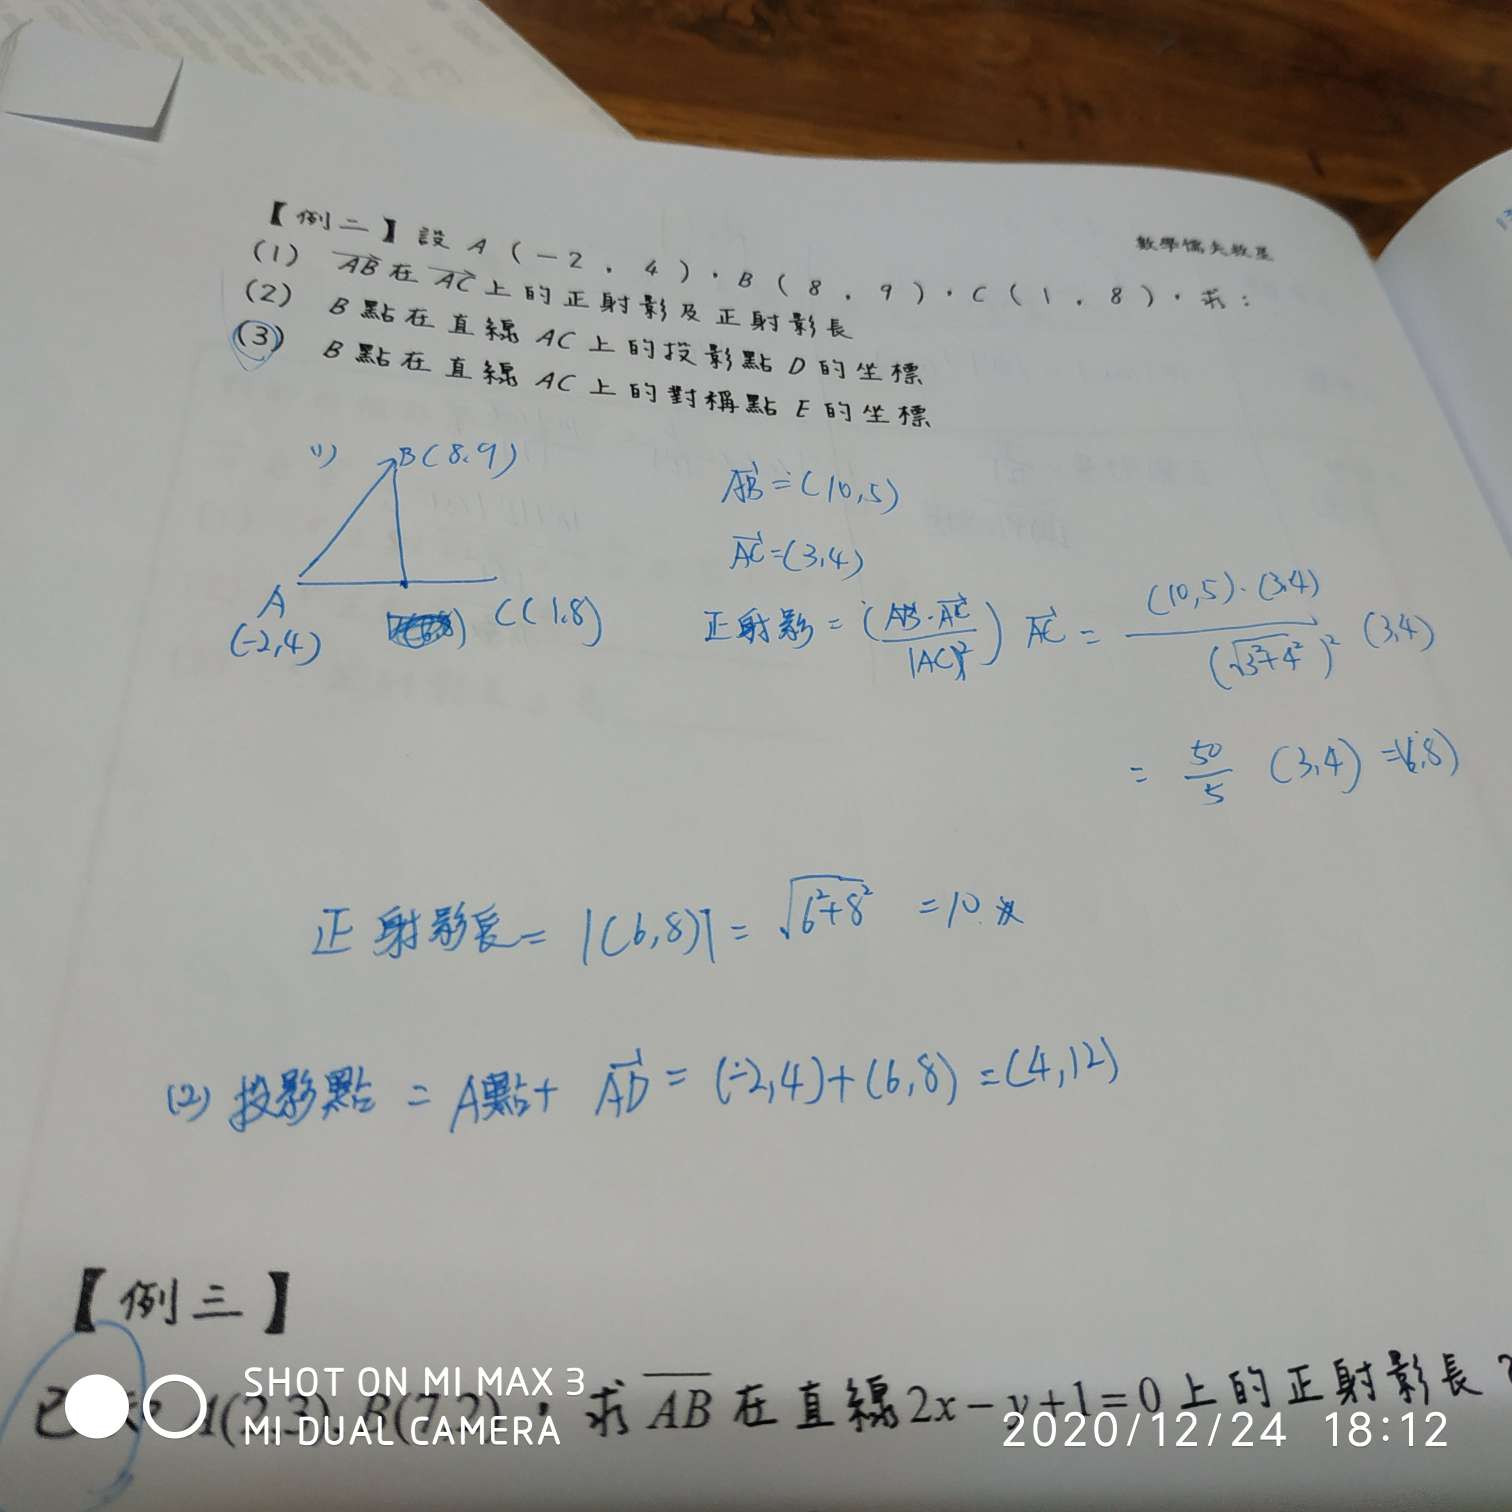 數學
【例二】設 A(-2,4)、B(8,9)、C(1,8),求:
(1) AB在AC上的正射影及正射影長
(2) B點在直線AC上的投影點D的坐標
(3) B點在直線AC上的對稱點E的坐標
(1) B(8,9)
A
(-2,4)
C(1,8)
AB=(10,5)
AC=(3,4)
正射影=(AB·AC/|AC|²)AC=(10,5)·(3,4)/(√3²+4²)² (3,4)
=50/5 (3,4)=(6,8)
正射影長=|(6,8)|=√6²+8²=10
(2) 投影點=A點+AD=(-2,4)+(6,8)=(4,12)
【例三】
求AB在直線2x-y+1=0上的正射影長?
SHOT ON MI MAX 3
MI DUAL CAMERA
2020/12/24 18:12